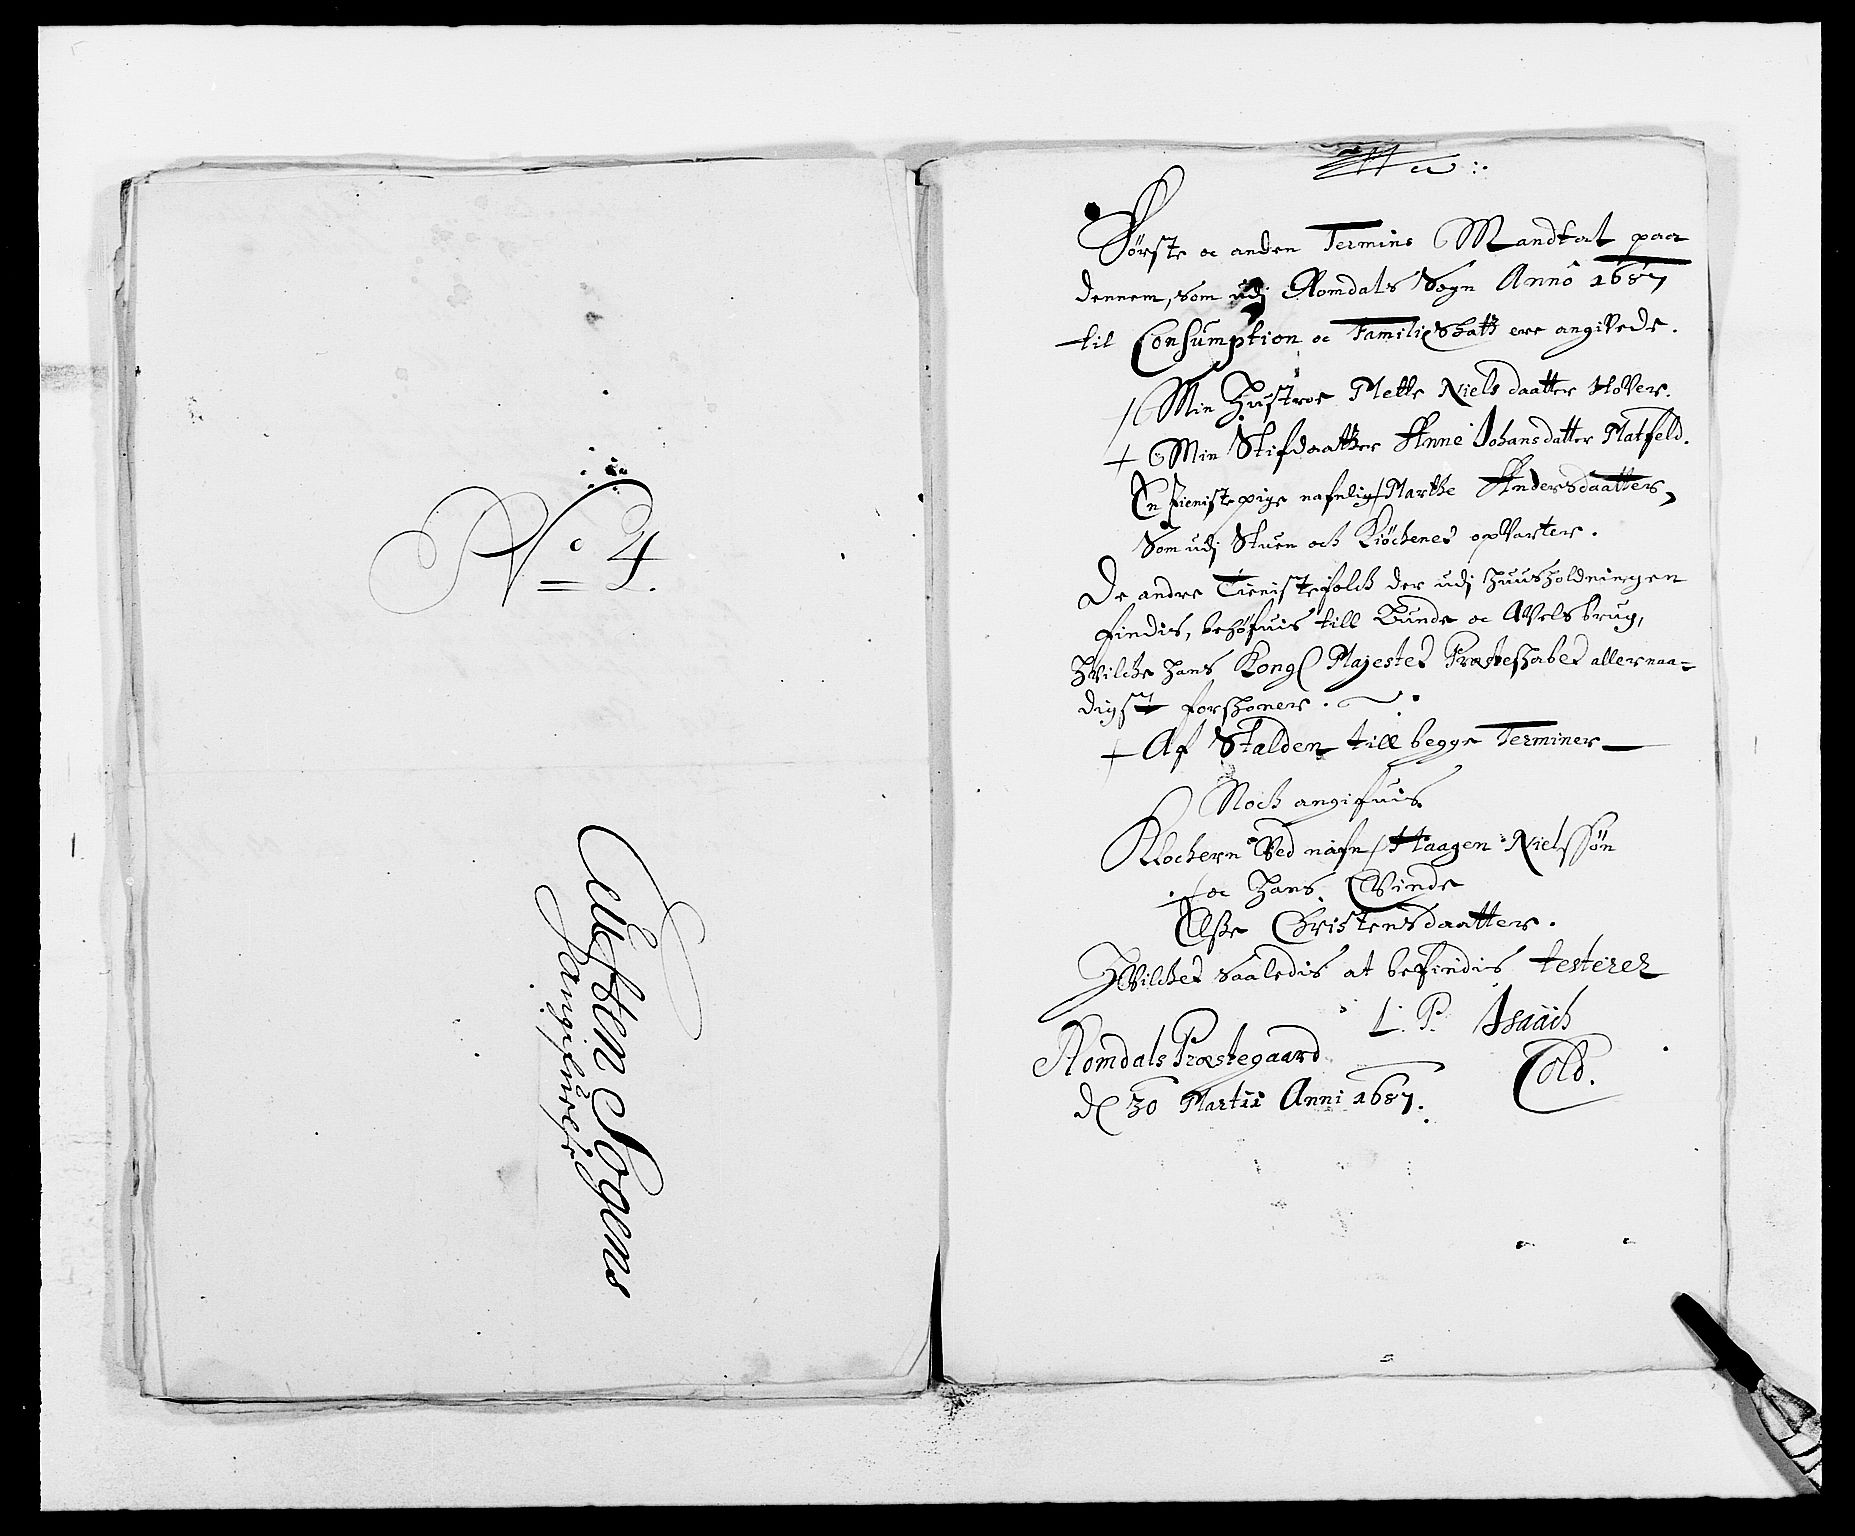 No 4.
Sogens
Første oc anden Termins Mandtal paa
dennem, som udj Romdals Sogn Anno 1687
til Consumption oc Familie Skatt ere angivede.
/ Min Hustroe Mette Nielsdaatter Hover.
+ Min Stifdaatter Anne Johansdatter Matfeld.
En Tieniste pige nafnlig / Marthe Andersdaatter,
Som udj Stuen och Kiøchenet opVarter.
De andre Tienistefolck der udj Huusholdningen
findis, behøfuis till Bunde oc Avelsbrug,
Hvilcke Hans Kongl Majestet Præsteskabet allernaa-
digst forskoner.
+ Af Stalden till begge Terminer
Noch angifuis
Klochern Ved nafn / Haagen Nielssøn
+ oc Hans Qvinde
Elsse Christensdaatter.
Hvilchet saaledis at befindis testerer
Romdals Præstegaard
L. P. Isaach
Cold.
d 30 Martii Anni 1687.